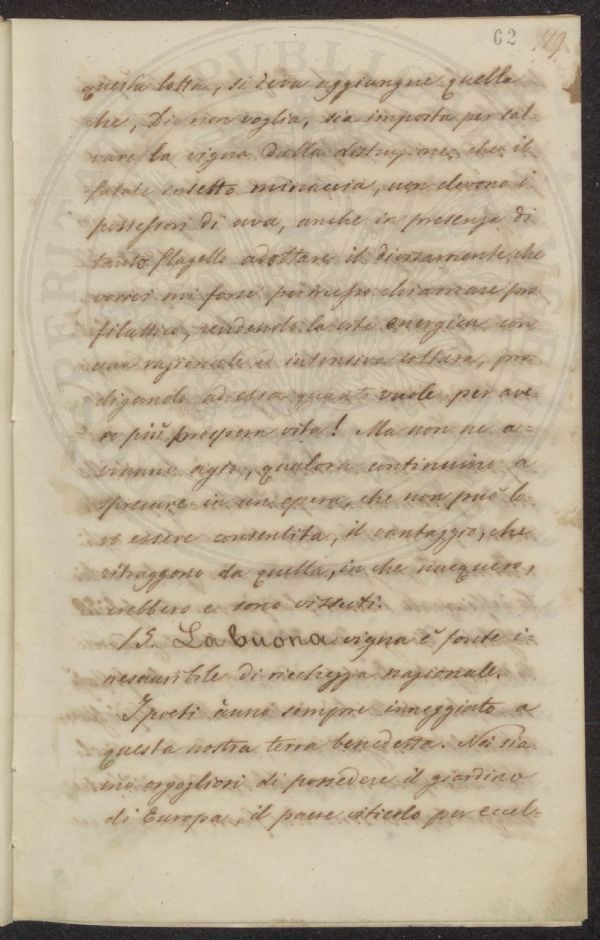 62 49
questa lotta, si deva aggiungere quella
che, Dio non voglia, sia imposta per sal-
vare la vigna dalla distruzione, che il
fatale insetto minaccia, non devono i
possessori di uva, anche in presenza di
tanto flagello adottare il diversamente, che
vorrei mi fosse permesso chiamare pro
filattico, rendendo la vite energica con
una razionale ed intensiva coltura, pro-
digando ad essa quanto vuole per ave-
re più prospera vita! Ma non ne a-
vranno agio, qualora continuino a
sprecare in un opera, che non può lo-
ro essere consentita, il vantaggio, che
ritraggono da quella, in che nacquero,
crebbero e sono vissuti.
15. La buona vigna è fonte i-
nesauribile di ricchezza nazionale.
I poeti ànno sempre inneggiato a
questa nostra terra benedetta. Noi sia-
mo orgogliosi di possedere il giardino
di Europa, il paese viticolo per eccel-